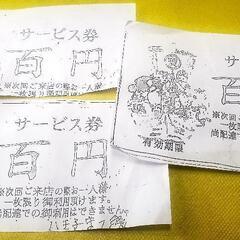 サービス券
百円
※次回ご来店の際お一人様
一枚限り
サービス券
百円
※次回ご来店の際お一人様
一枚限り御利用頂けます。
尚配達での御利用はできません。
サービス券
百
有効期限
※次回ご
一枚限
尚配達